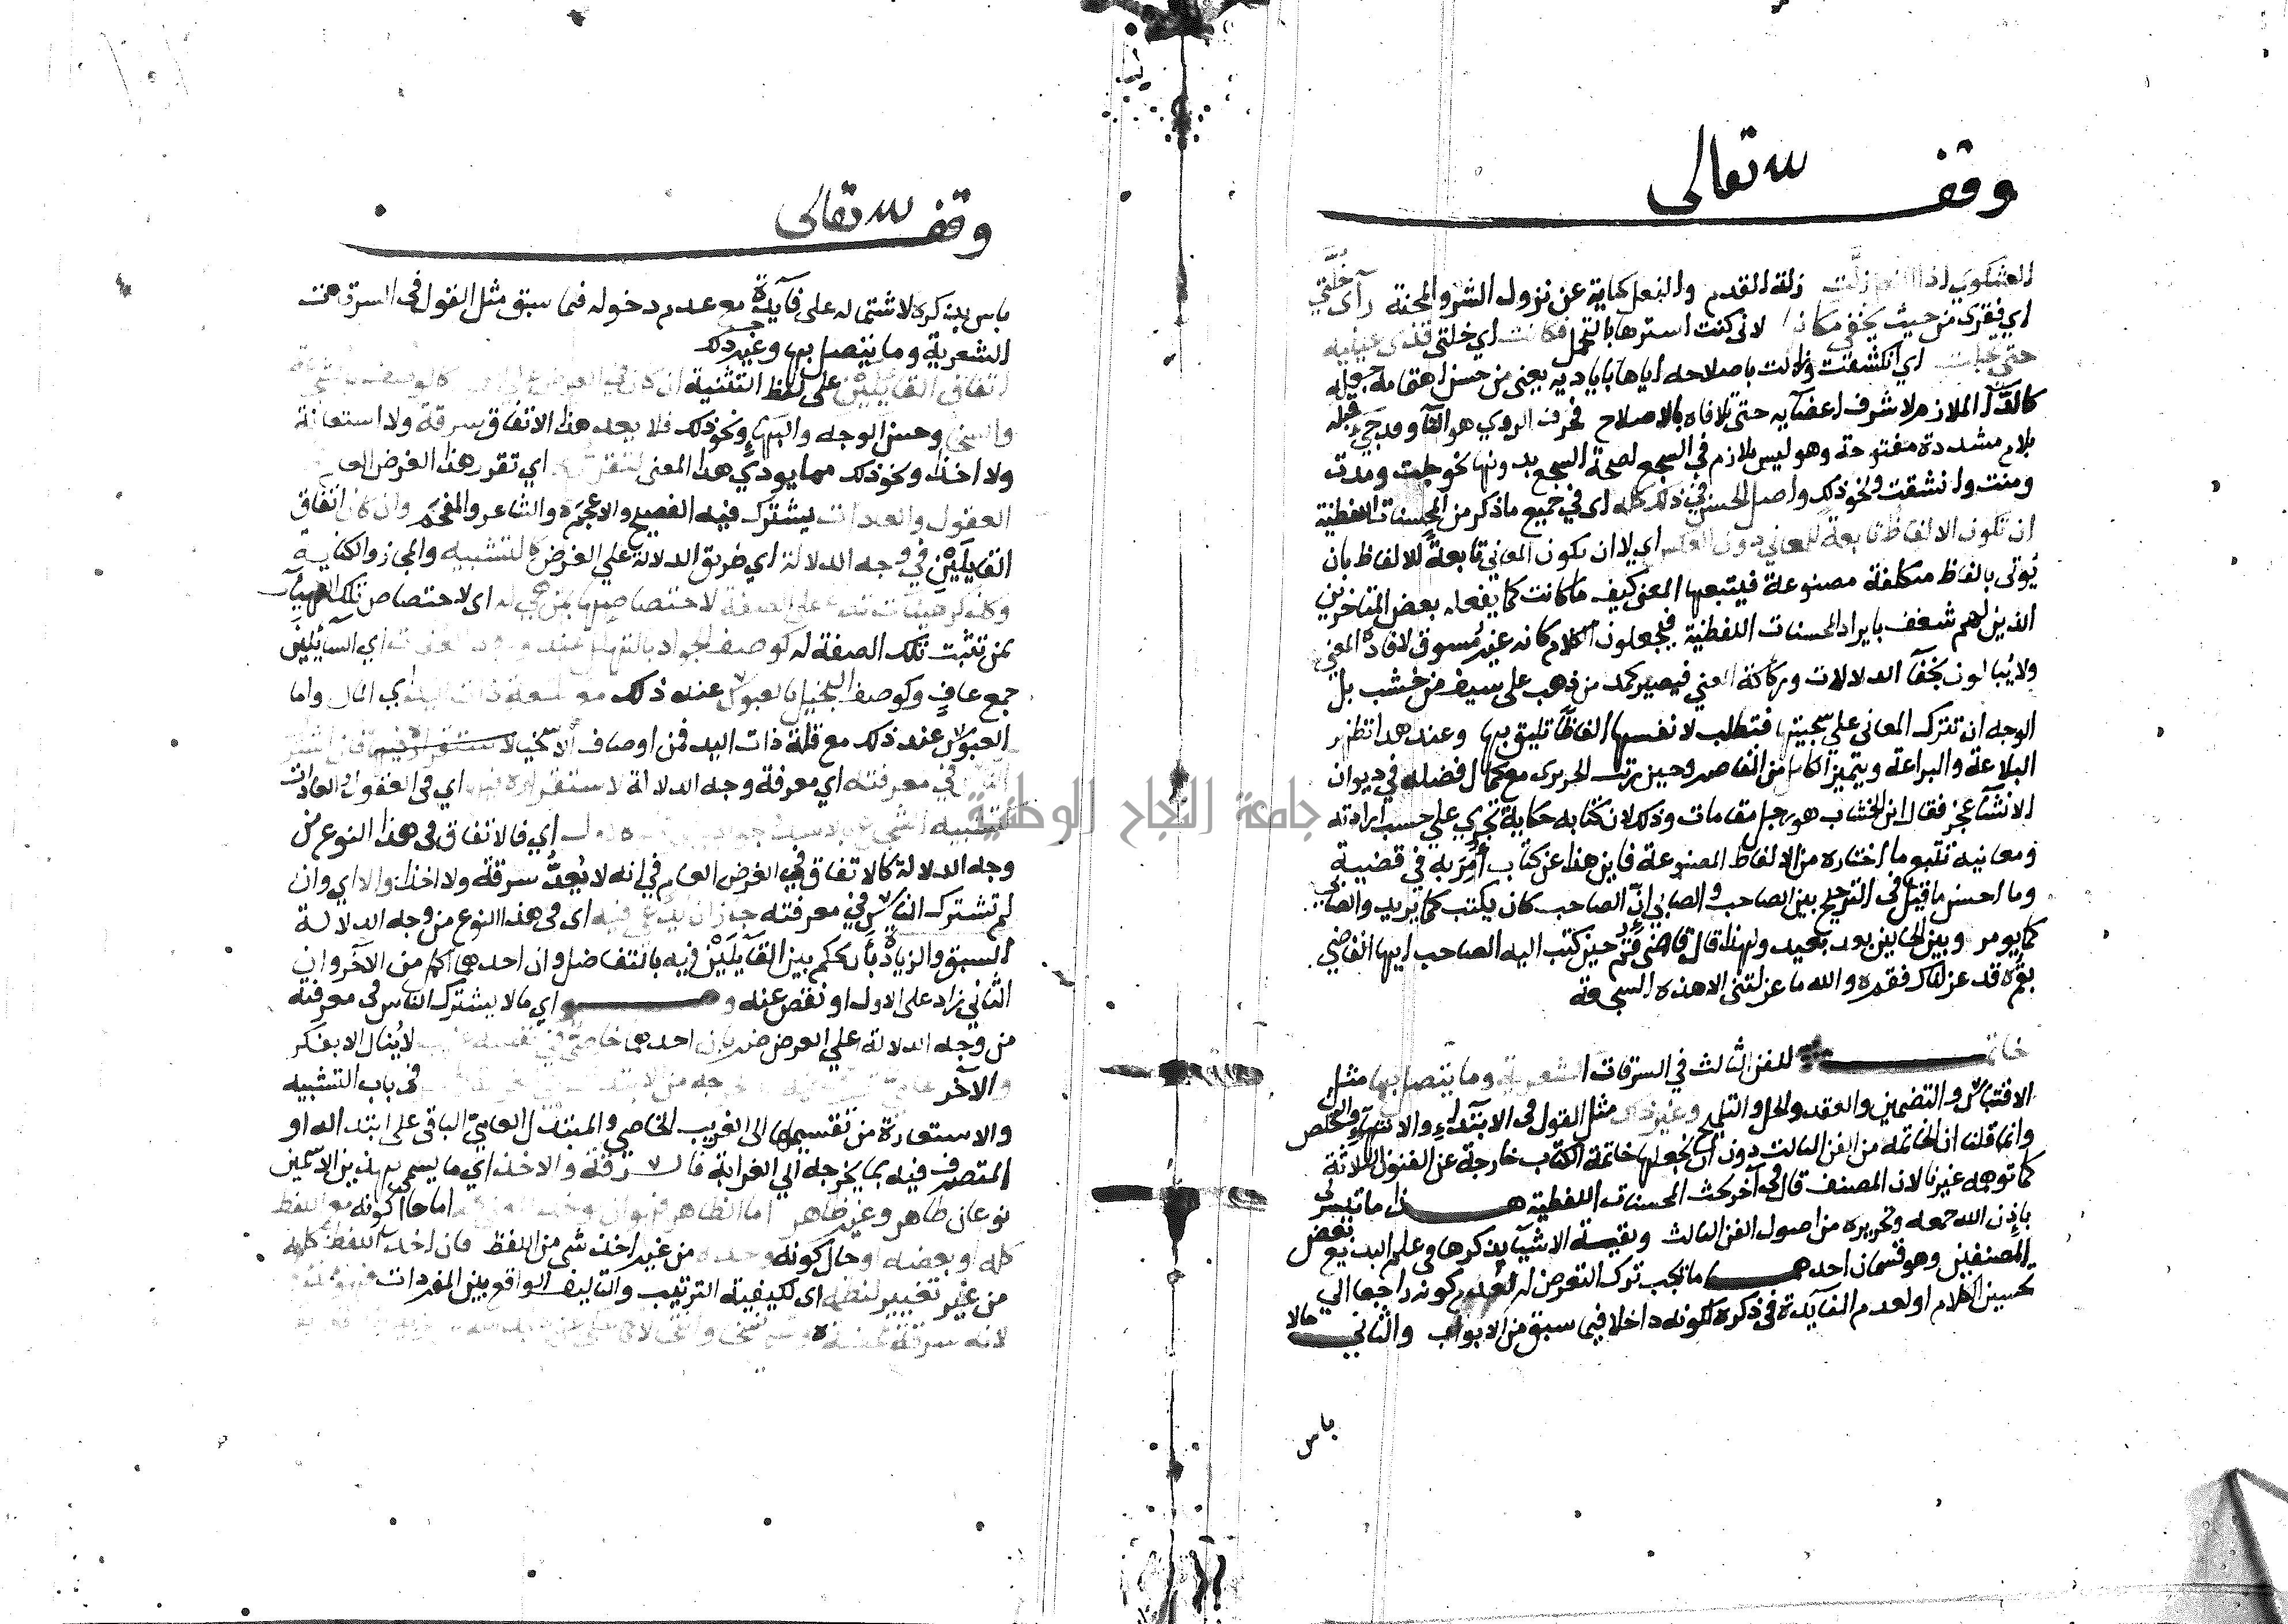 وقف لله تعالى
زلة القدم والنعل كناية عن نزول الشر والمحنة رأى خلتي
اي فقري من حيث يخفى مكانها لاني كنت استرها بالتجمل فكانت اي خلتي قذى عينيه
حتى تجلت اي انكشفت وزالت باصلاحه اياها باياديه يعني من حسن اهتمامه جعله
كالدآ الملازم لاشرف اعضآيه حتى تلافاه بالاصلاح فحرف الروي هو التآ وقد جيء قبله
بلام مشددة مفتوحة وهو ليس بلازم في السجع لصحة السجع بدونها نحو جلت ومدت
ومنت وانشقت ونحو ذلك واصل الحسن في ذلك كله اى في جميع ما ذكر من المحسنات اللفظية
ان تكون الالفاظ تابعة للمعاني دون العكس اي لا ان تكون المعاني تابعة للالفاظ بان
يؤتى بالفاظ متكلفة مصنوعة فيتبعها المعنى كيف ما كانت كما يفعله بعض المتاخرين
الذين لهم شغف بايراد المحسنات اللفظية فيجعلون الكلام كانه غير مسوق لافادة المعني
ولا يبالون بخفآ الدلالات وركاكة المعني فيصير كغمد من ذهب على سيف من خشب بل
الوجه ان تترك المعاني علي سجيتها فتطلب لانفسها الفاظًا تليق بها وعند هدا تظهر
البلاغة والبراعة ويتميز الكامل من القاصر وحين رتب الحريرى مع كمال فضله في ديوان
الانشآ عجز فقال ابن الخشاب هو رجل مقامات وذلك لان كتابه حكاية تجري علي حسب ارادته
ومعانيه تتبع ما اختاره من الالفاظ المصنوعة فاين هذا عن كتاب أُمِرَ به في قضية
وما احسن ما قيل في الترجيح بين الصاحب والصابي إنّ الصاحب كان يكتب كما يريد والصابي
كما يومر وبين الحالين بون بعيد ولهذا قال قاضي قم حين كتب اليه الصاحب ايها القاضي
بقم قد عزلناك فقم والله ما عزلتني الا هذه السجعة
خاتمـة للفن الثالث في السرقات الشعرية وما يتصل بها مثل
الاقتباس والتضمين والعقد والحل والتلميح وغير ذلك مثل القول في الابتدآء والانتهآء والتخلص
وانما قلنا ان الخاتمه من الفن الثالث دون ان نجعلها خاتمة الكتاب خارجة عن الفنون الثلاثة
كما توهمه غيرنا لان المصنف قال في آخر بحث المحسنات اللفظية هـذا ما تيسر لي
باذن الله جمعه وتحريره من اصول الفن الثالث وبقيت الاشيآ يذكرها في علم البديع بعض
المصنفين وهو قسمان احدهما ما يجب ترك التعرض له لعدم كونه راجعا الي
تحسين الكلام او لعدم الفآيدة في ذكره لكونه داخلا فيما سبق من الابواب والثاني مالا
باس
وقف لله تعالى
باس بذكره لاشتماله على فآيدة مع عدم دخوله فيما سبق مثل القول في السرقات
الشعرية وما يتصل بها وغير ذلك
اتفاق القايلَيْن على لفظ التثنية ان كان في الغرض كالوصف بالشجاعة
والسخا وحسن الوجه والبهآء ونحو ذلك فلا يعد هذا الاتفاق سرقة ولا استعانة
ولا اخذا ونحو ذلك مما يودي هدا المعنى لتقرره اي تقرر هذا الغرض العام
العقول والعادات يشترك فيه الفصيح والاعجم والشاعر والمفحم وان كان اتفاق
القايلَيْنِ في وجه الدلالة اي طريق الدلالة علي الغرض كالتشبيه والمجاز والكناية
وكذكر هيئات تدل على الصفة لاختصاصها بمن هي له اي لاختصاص تلك الهيآت
بمن تثبت تلك الصفة له كوصف الجواد بالتهلل عند ورود العفات اي السآيلين
جمع عافٍ وكوصف البخيل بالعبوس عند ذلك مع سعة ذات اليد اي المال واما
العبوس عند ذلك مع قلة ذات اليد فمن اوصاف الاسخيا
في معرفته اي معرفة وجه الدلالة لاستقراره فيهما اي في العقول والعادات
كتشبيه الشجاع بالاسد اي فالاتفاق في هذا النوع من
وجه الدلالة كالاتفاق في الغرض العام في انه لا يُعدُّ سرقة ولا اخذا والا اي وان
لم تشترك الناس في معرفته جاز ان يدعى فيه اى في هذا النوع من وجه الدلالة
السبق والزيادة بأن يحكم بين القآيلَيْن فيه بالتفاضل وان احدهما اكمل من الآخر وان
الثاني زاد على الاول او نقص عنه وهـو اي مالا يشترك الناس في معرفته
من وجه الدلالة علي الغرض ضربان احدهما خاصي في نفسه غريب لا يُنال الا بفكر
والآخر في باب التشبيه
والاستعارة من تقسيمها الى الغريب الخاصي والمبتذل العامي الباقي على ابتذاله او
المتصرف فيه بما يخرجه الي الغرابة فالسرقة والاخذ اي ما يسمى بهذين الاسمين
نوعان ظاهر وغير ظاهر اما الظاهر فهو ان يوخذ المعنى كله اما حال كونه مع اللفظ
كله او بعضه او حال كونه وحده من غير اخذ شي من اللفظ فان اخذ اللفظ كله
من غير تغيير لنظمه اى لكيفية الترتيب والتاليف الواقع بين المفردات
لانه سرقة محضة
جامعة النجاح الوطنية